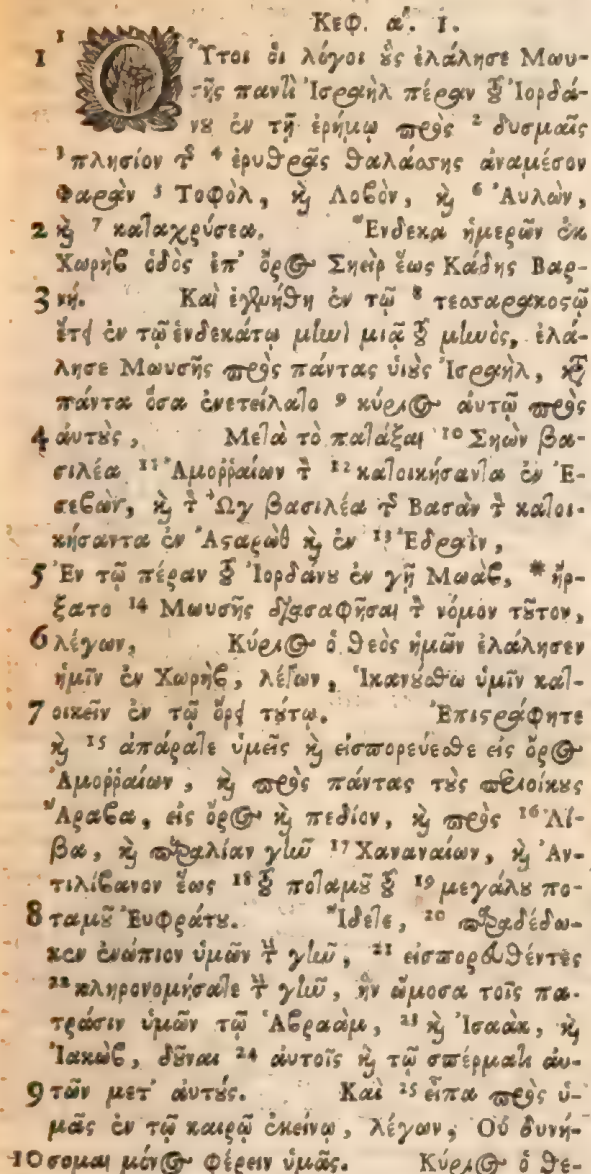 Κεφ. α'. 1.
1 Οὗτοι οἱ λόγοι οὓς ἐλάλησε Μωυ-
σῆς παντὶ Ἰσραὴλ πέραν τοῦ Ἰορδά-
νου ἐν τῇ ἐρήμῳ πρὸς ² δυσμαῖς
³ πλησίον τῆς ⁴ ἐρυθρᾶς θαλάσσης ἀναμέσον
Φαρὰν ⁵ Τοφὸλ, καὶ Λοβὸν, καὶ ⁶ Αὐλὼν,
2 καὶ ⁷ καταχρύσεα. Ἕνδεκα ἡμερῶν ἐκ
Χωρὴβ ὁδὸς ἐπ' ὄρος Σηεὶρ ἕως Κάδης Βαρ-
3 νή. Καὶ ἐγενήθη ἐν τῷ ⁸ τεσσαρακοστῷ
ἔτει ἐν τῷ ἑνδεκάτῳ μηνὶ μιᾷ τοῦ μηνὸς, ἐλά-
λησε Μωυσῆς πρὸς πάντας υἱοὺς Ἰσραὴλ, κατὰ
πάντα ὅσα ἐνετείλατο ⁹ κύριος αὐτῷ πρὸς
4 αὐτοὺς, Μετὰ τὸ πατάξαι ¹⁰ Σηὼν βα-
σιλέα ¹¹ Ἀμοῤῥαίων τὸν ¹² κατοικήσαντα ἐν Ἐ-
σεβὼν, καὶ τὸν Ὢγ βασιλέα τῆς Βασὰν τὸν κατοι-
κήσαντα ἐν Ἀσταρὼθ καὶ ἐν ¹³ Ἐδραῒν,
5 Ἐν τῷ πέραν τοῦ Ἰορδάνου ἐν γῇ Μωὰβ, * ἤρ-
ξατο ¹⁴ Μωυσῆς διασαφῆσαι τὸν νόμον τοῦτον,
6 λέγων, Κύριος ὁ θεὸς ἡμῶν ἐλάλησεν
ἡμῖν ἐν Χωρὴβ, λέγων, Ἱκανούσθω ὑμῖν κατ-
7 οικεῖν ἐν τῷ ὄρει τούτῳ. Ἐπιστράφητε
καὶ ¹⁵ ἀπάρατε ὑμεῖς καὶ εἰσπορεύεσθε εἰς ὄρος
Ἀμοῤῥαίων, καὶ πρὸς πάντας τοὺς περιοίκους
Ἄραβα, εἰς ὄρος καὶ πεδίον, καὶ πρὸς ¹⁶ Λί-
βα, καὶ παραλίαν γῆν ¹⁷ Χαναναίων, καὶ Ἀν-
τιλίβανον ἕως ¹⁸ τοῦ ποταμοῦ τοῦ ¹⁹ μεγάλου πο-
8 ταμοῦ Εὐφράτου. Ἴδετε, ²⁰ παραδέδω-
κεν ἐνώπιον ὑμῶν τὴν γῆν, ²¹ εἰσπορευθέντες
²² κληρονομήσατε τὴν γῆν, ἣν ὤμοσα τοῖς πα-
τράσιν ὑμῶν τῷ Ἀβραὰμ, ²³ καὶ Ἰσαὰκ, καὶ
Ἰακὼβ, δοῦναι ²⁴ αὐτοῖς καὶ τῷ σπέρματι αὐ-
9 τῶν μετ' αὐτούς. Καὶ ²⁵ εἶπα πρὸς ὑ-
μᾶς ἐν τῷ καιρῷ ἐκείνῳ, λέγων, Οὐ δυνή-
10 σομαι μόνος φέρειν ὑμᾶς. Κύριος ὁ θε-